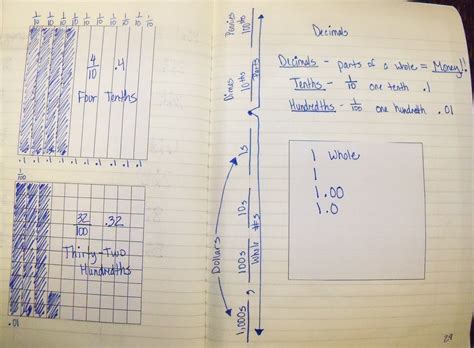 1/10 1/10 1/10 1/10 1/10 1/10 1/10 1/10 1/10 1/10
4/10 .4
Four Tenths
.1 .1 .1 .1 .1 .1 .1 .1 .1 .1
1/100
32/100 .32
Thirty-Two
Hundredths
.01
Pennies 100ths
Dimes 10ths Parts
1s
10s
100s
1,000s ,
Whole #s
Dollars
Decimals
Decimals - parts of a whole = Money!!
Tenths - 1/10 one tenth .1
Hundredths - 1/100 one hundredth .01
1 Whole
1
1.00
1.0
29